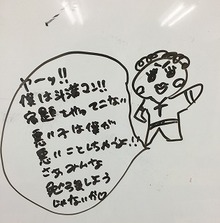 ヤーッ!!
僕は斗洋コン!!
宿題をやってこない
悪い子は僕が
悪いことしちゃうよ!!
さぁみんな
勉強しよう
じゃないか♡